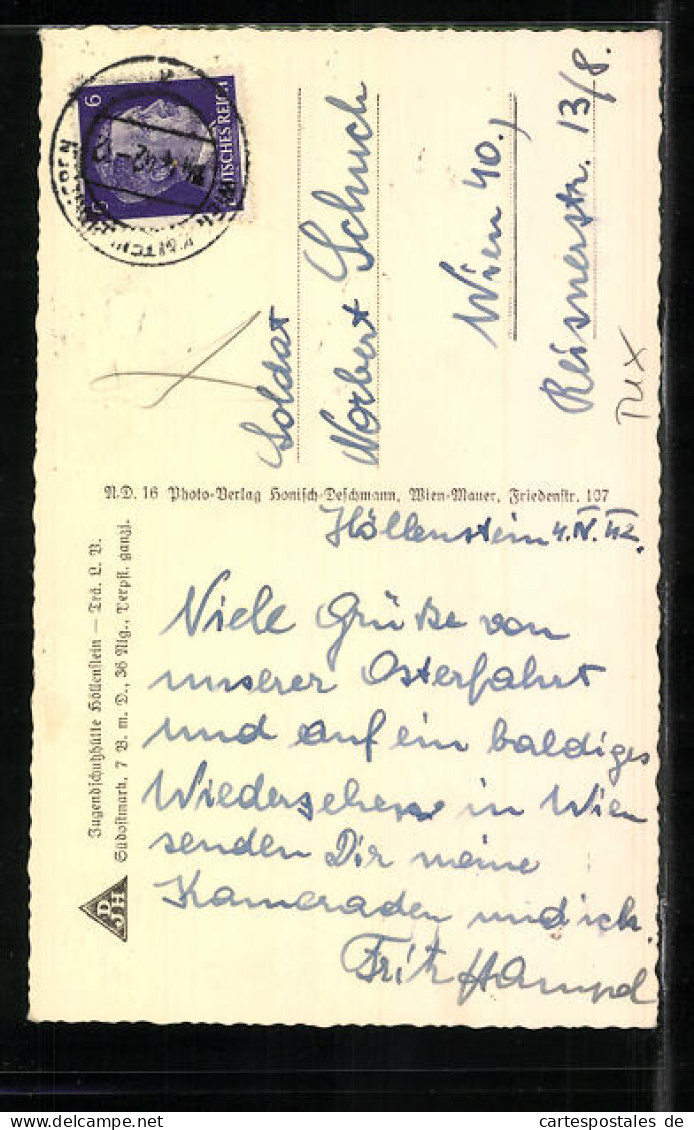 6
DEUTSCHES REICH
Soldat
Norbert Schuch
Wien 40.,
Reisnerstr. 13/8.
TUX
N.D. 16 Photo-Verlag Honisch-Deschmann, Wien-Mauer, Friedenstr. 107
Jugendschutzhütte Höllenstein — Trä. L. V.
Südostmark, 7 B. m. D., 36 Mlg., Verpfl. ganzj.
DJH
Höllenstein 4.IV.42.
Viele Grüße von
unserer Osterfahrt
und auf ein baldiges
Wiedersehen in Wien
senden Dir meine
Kameraden und ich.
Fritz Hampel
cartespostales.de